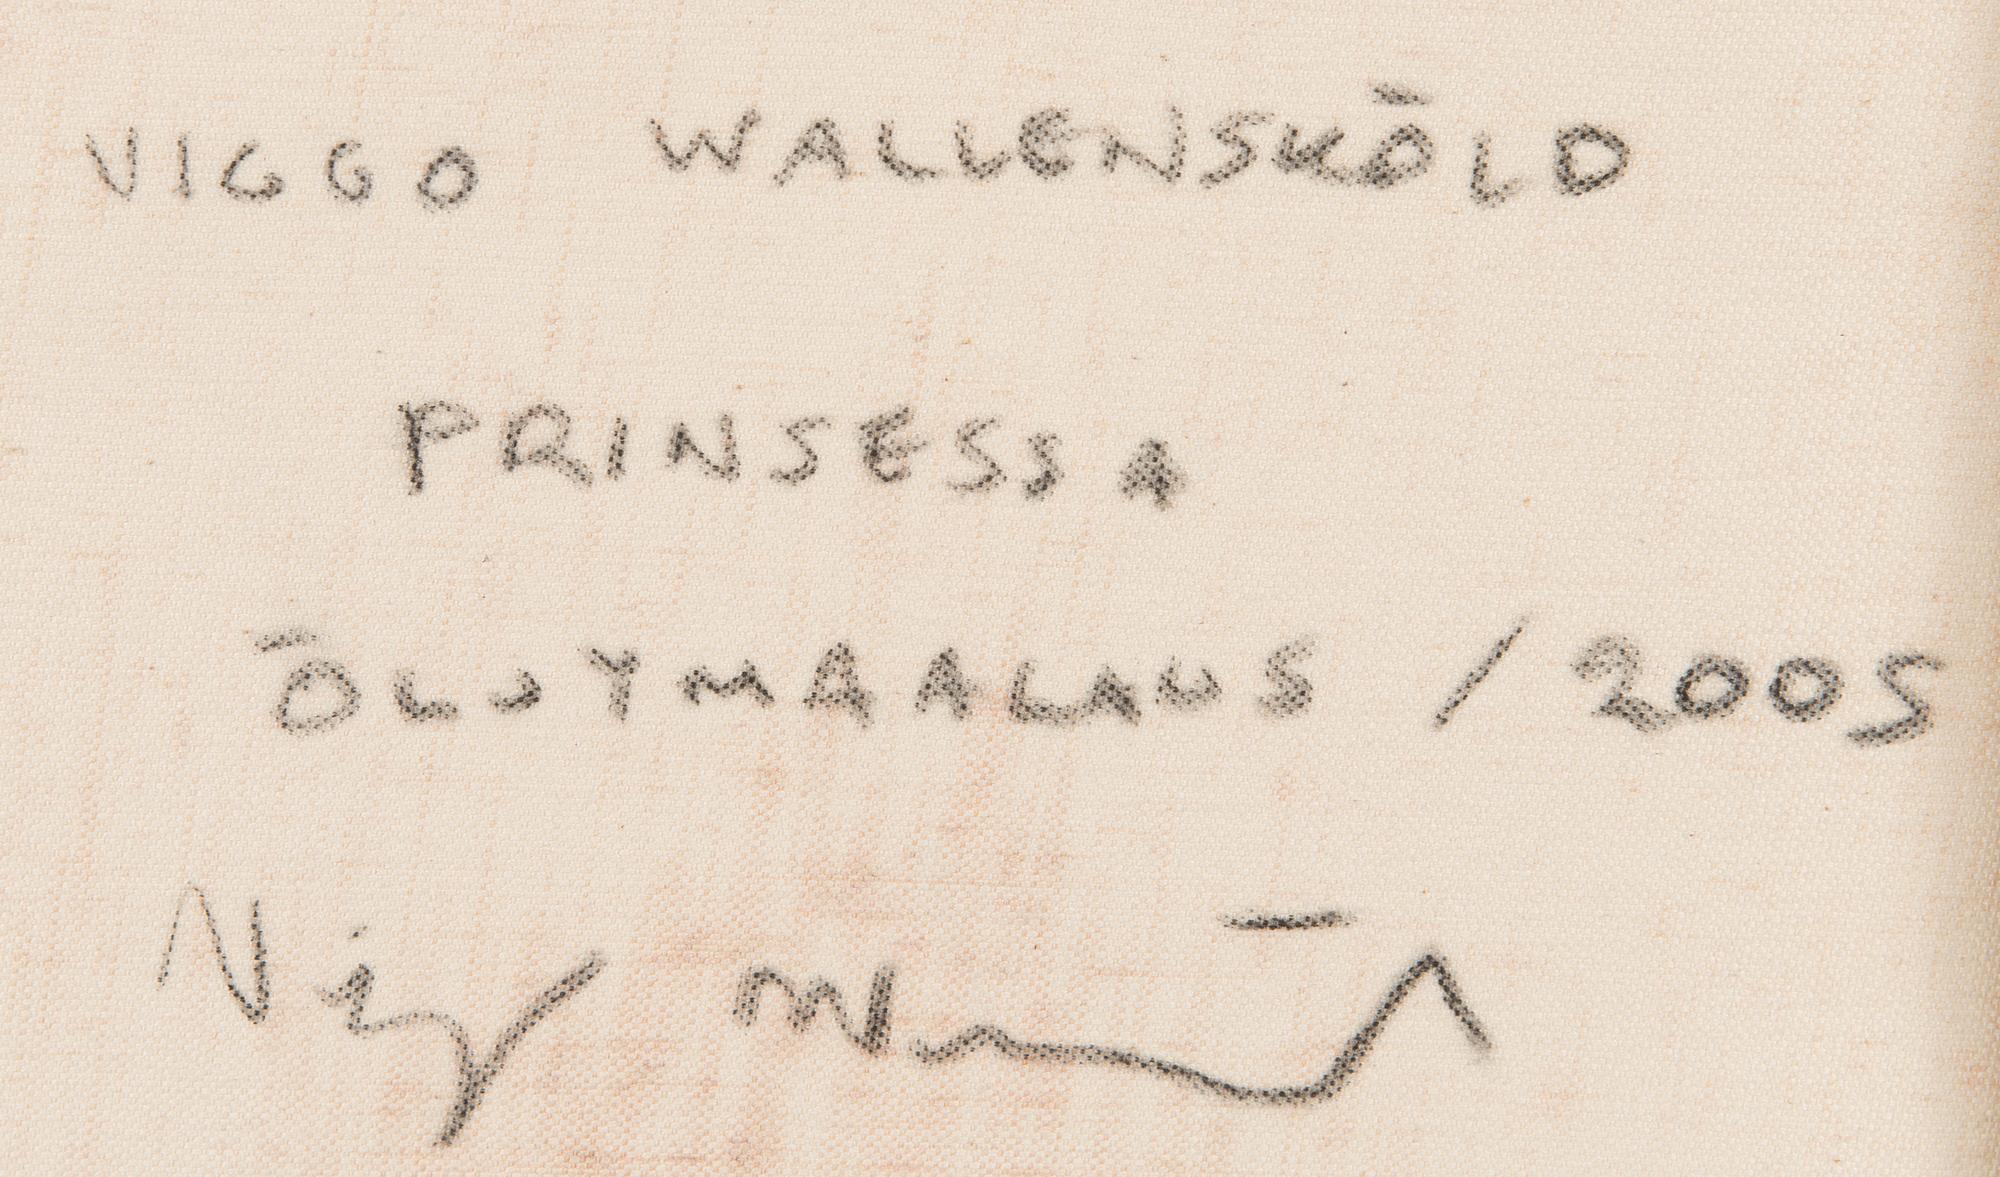 VIGGO WALLENSKÖLD
PRINSESSA
ÖLJYMAALAUS / 2005